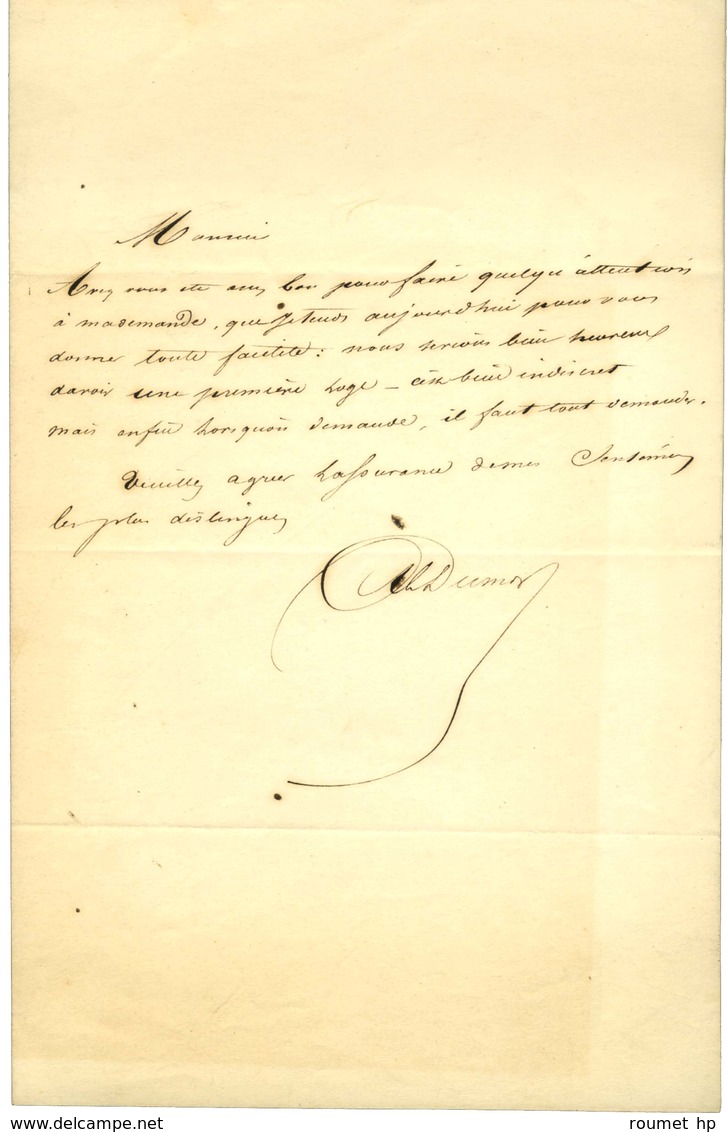 Monsieur
Avez vous été assez bon pour faire quelqu'attention
à ma demande, que J'étends aujourd'hui pour vous
donner toute facilité : nous serions bien heureux
davoir une première Loge – c'est bien indiscret
mais enfin Lorsquon demande, il faut tout demander.
Veuillez agréer Lassurance de mes Sentimens
les plus distingués
Alx Dumas
roumet hp